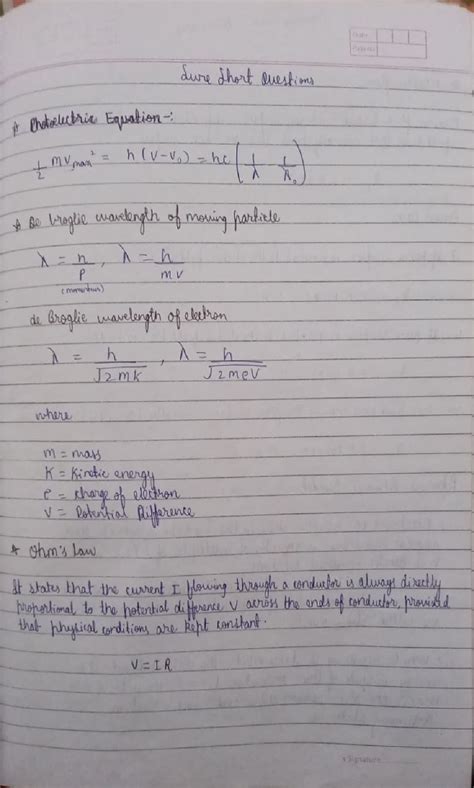 Date
Sure Short Questions
* Photoelectric Equation -:
1/2 mv max² = h (v - v₀) = hc ( 1/λ - 1/λ₀ )
* De broglie wavelength of moving particle
λ = h/p , λ = h/mv
(momentum)
de Broglie wavelength of electron
λ = h/√2mk , λ = h/√2meV
where
m = mass
K = Kinetic energy
e = charge of electron
V = Potential Difference
* Ohm's Law
It states that the current I flowing through a conductor is always directly
proportional to the potential difference V across the ends of conductor, provided
that physical conditions are kept constant.
V = IR
Signature